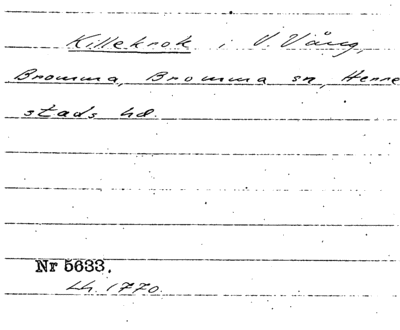 Killekrok i V. Vång
Bromma, Bromma sn, Herre
stads hd.
Nr 5633.
Lh. 1770.